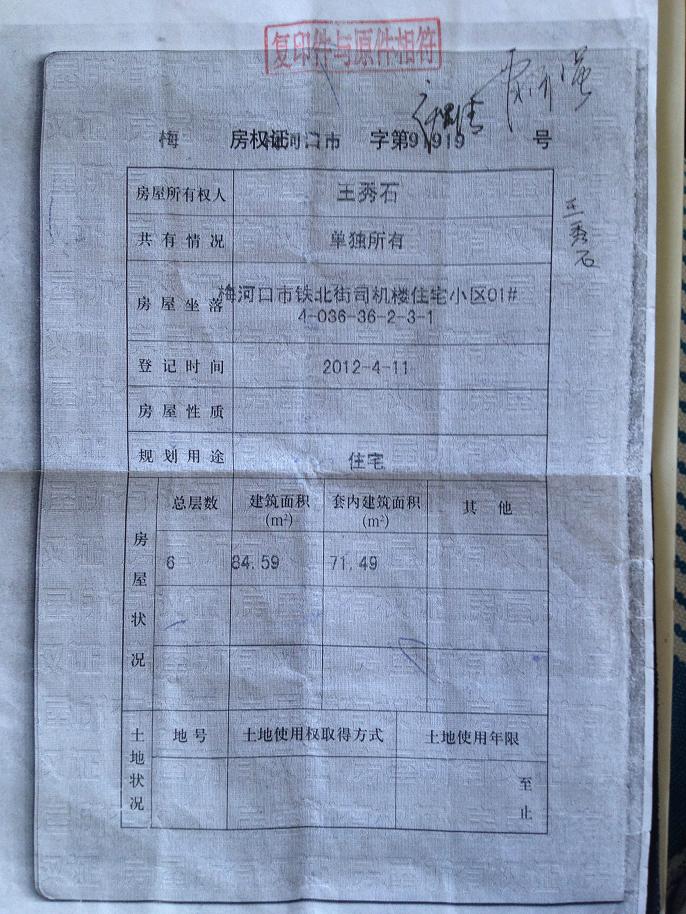 复印件与原件相符
梅 房权证梅河口市 字第91919 号
房屋所有权人 王秀石
王秀石
共有情况 单独所有
房屋坐落 梅河口市铁北街司机楼住宅小区01#
4-036-36-2-3-1
登记时间 2012-4-11
房屋性质
规划用途 住宅
房屋状况
总层数 建筑面积 套内建筑面积 其他
(m²) (m²)
6 84.59 71.49
土地状况
地号 土地使用权取得方式 土地使用年限
至
止